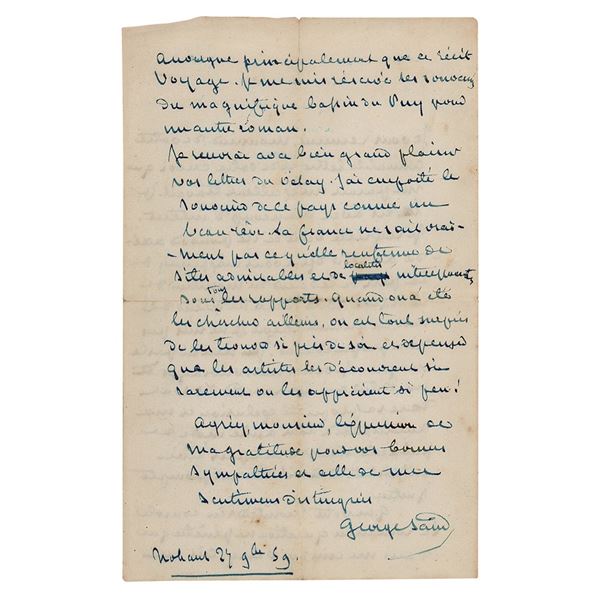 auvergne principalement que ce récit
voyage. Je me suis réservé les souvenirs
du magnifique bassin du Puy pour
un autre roman.
Je reverrai avec bien grand plaisir
vos lettres du Velay. J'ai emporté le
souvenir de ce pays comme un
beau rêve. La france ne sait vrai-
-ment pas ce qu'elle renferme de
sites admirables et de localités intéressantes
sous tous les rapports. Quand on a été
les chercher ailleurs, on est tout surpris
de les trouver si près de soi et de penser
que les artistes les découvrent si
rarement ou les apprécient si peu!
Agréez, monsieur, l'expression de
ma gratitude pour vos bonnes
sympathies et celle de mes
sentiments distingués
George Sand
Nohant 27 9bre 59.